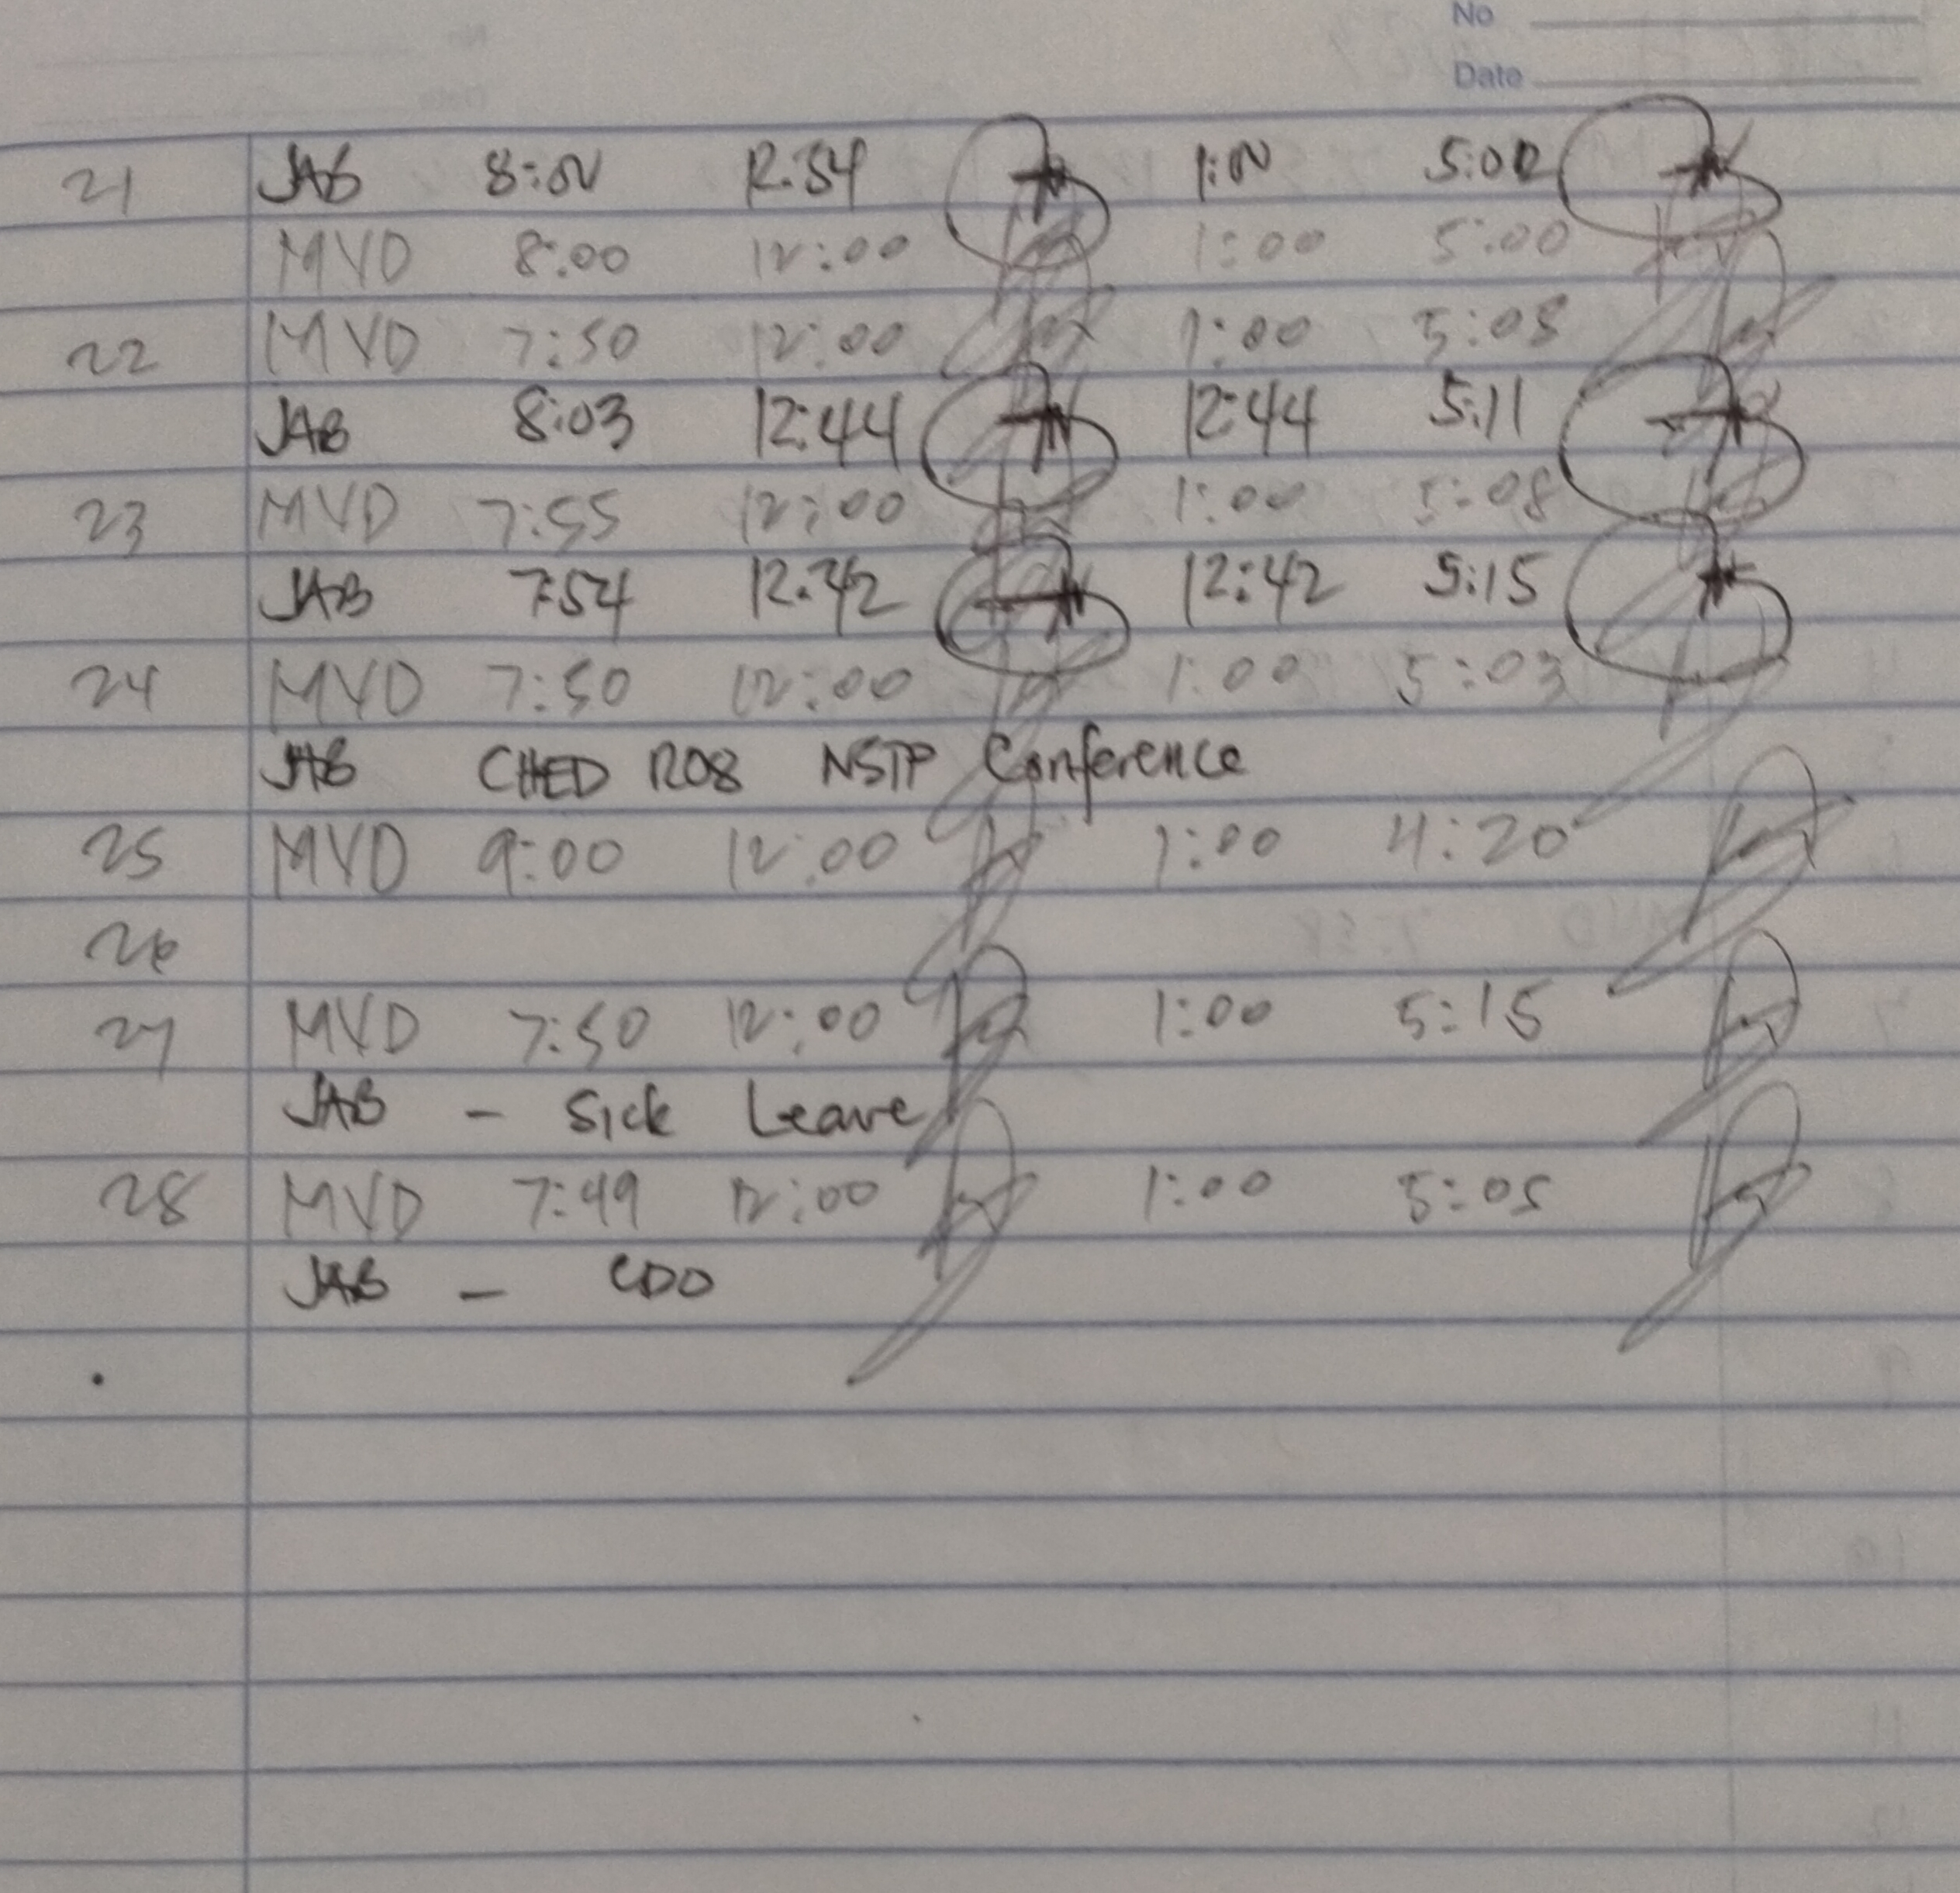 No
Date
21 JAB 8:00 12:54 1:00 5:02
MVD 8:00 12:00 1:00 5:00
22 MVD 7:50 12:00 1:00 5:08
JAB 8:03 12:44 12:44 5:11
23 MVD 7:55 12:00 1:00 5:08
JAB 7:54 12:42 12:42 5:15
24 MVD 7:50 12:00 1:00 5:03
JAB CHED RO8 NSTP Conference
25 MVD 9:00 12:00 1:00 4:20
26
27 MVD 7:50 12:00 1:00 5:15
JAB - Sick Leave
28 MVD 7:49 12:00 1:00 5:05
JAB - CDO